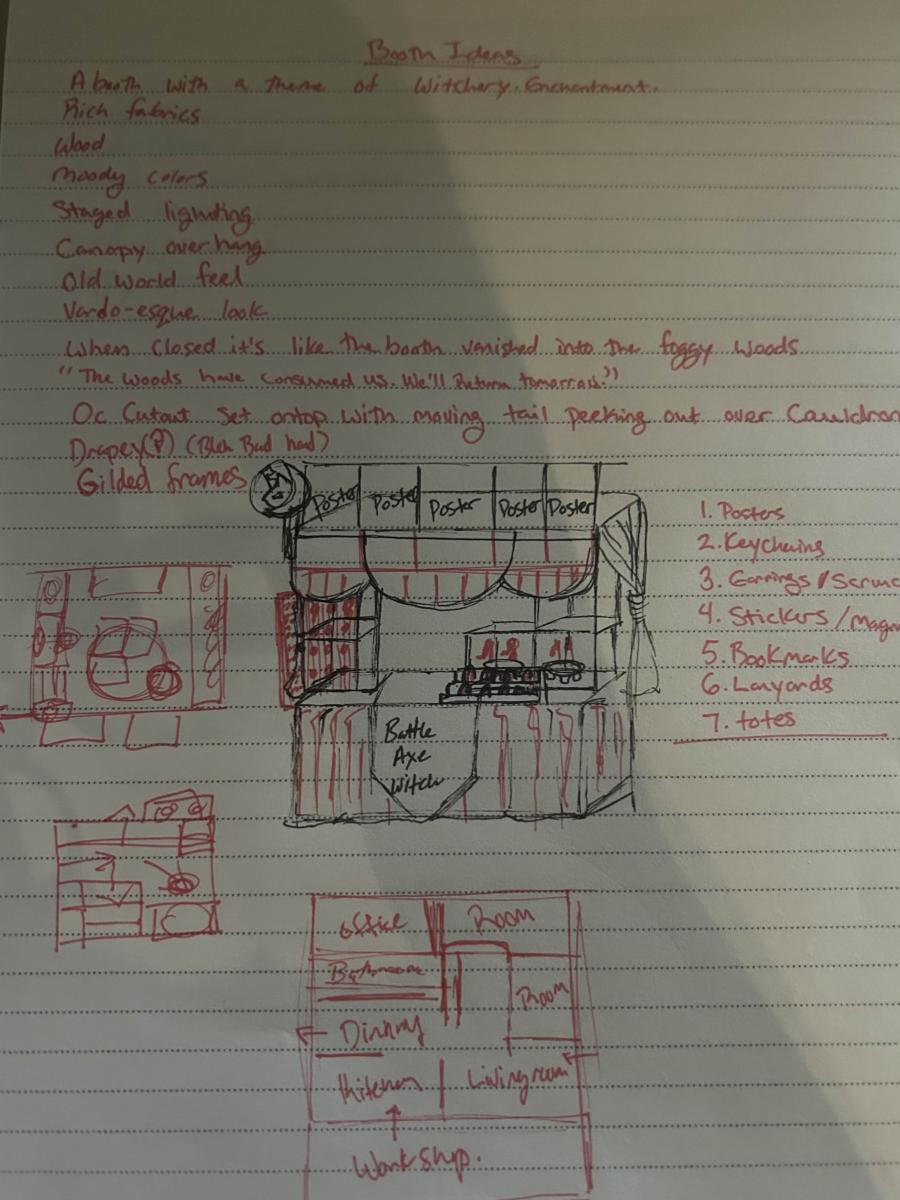 Booth Ideas
A booth with a theme of Witchery. Enchantment.
Rich fabrics
Wood
Moody Colors
Staged lighting
Canopy overhang
Old World feel
Vardo-esque look
When Closed it's like the booth vanished into the foggy woods
"The Woods have Consumed us. We'll Return tomorrow."
Oc Cutout set ontop with moving tail peeking out over Cauldron
Drapey(?)
Gilded frames
Poster Poster Poster Poster Poster
1. Posters
2. Keychains
3. Earrings/Scrunc
4. Stickers/Magn
5. Bookmarks
6. Lanyards
7. totes
Battle
Axe
Witch
office Room
Bathroom
Room
Dining
Kitchen Livingroom
Workshop.